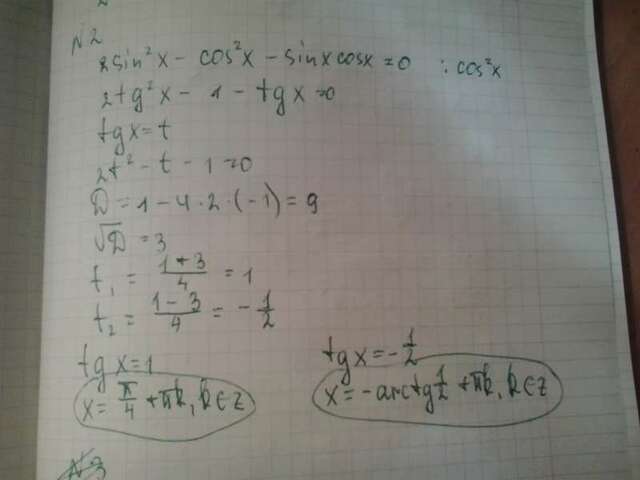 N2
2sin²x - cos²x - sinxcosx = 0 : cos²x
2tg²x - 1 - tgx = 0
tgx = t
2t² - t - 1 = 0
D = 1 - 4·2·(-1) = 9
√D = 3
t₁ = (1+3)/4 = 1
t₂ = (1-3)/4 = -1/2
tgx = 1 tgx = -1/2
x = π/4 + πk, k∈Z x = -arctg 1/2 + πk, k∈Z
N3